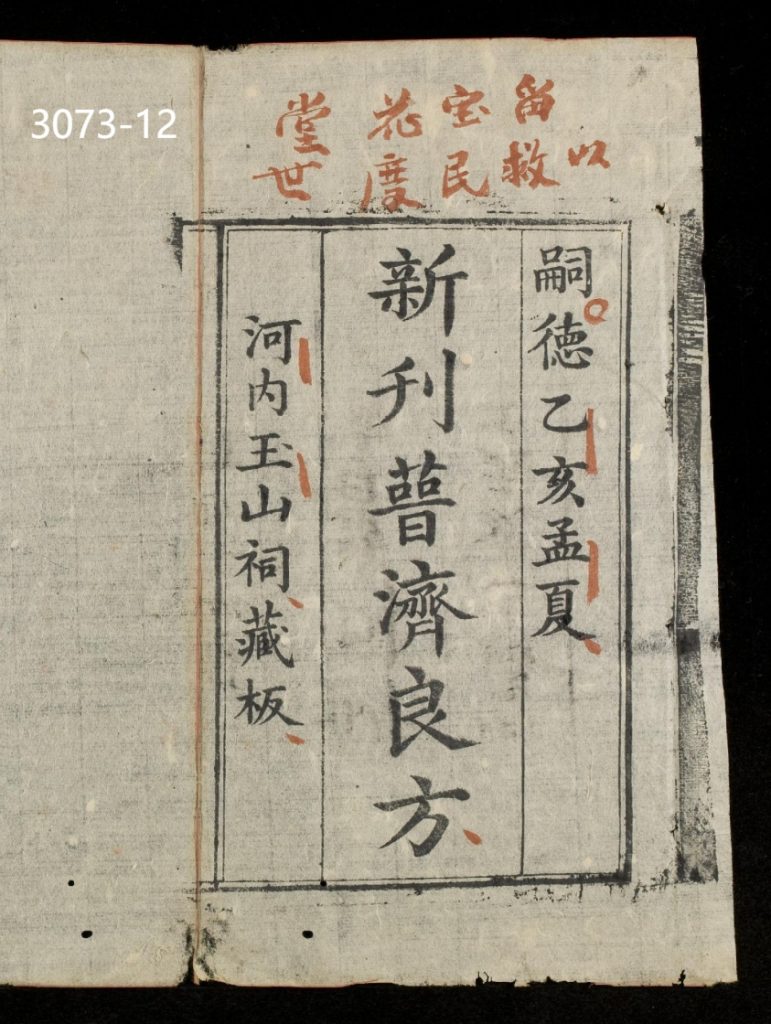 留宝花堂
以救民度世
嗣徳乙亥孟夏
新刊普濟良方
河内玉山祠藏板
3073-12